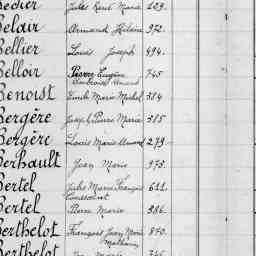 Bedier Jules René Marie 109.
Belair Armand Hilaire 972.
Bellier Louis Joseph 494.
Belloir Pierre Eugène 745
Ambroise Armand
Benoist Emile Marie Michel 384
Bergère Joseph Pierre Marie 315
Bergère Louis Marie Amand 279
Berhault Jean Marie 973.
Bertel Jules Marie François 611.
Bertel Pierre Marie 986.
Berthelot François Jean Marie 870.
Mathurin
Berthelot Marie